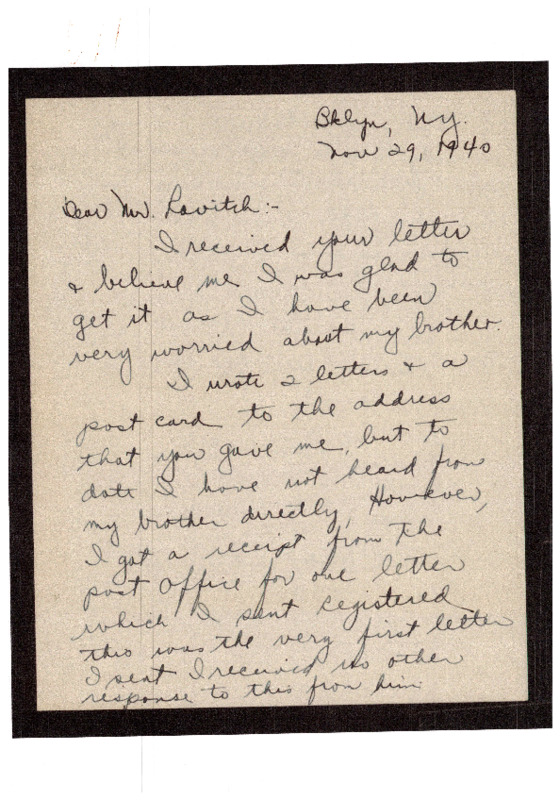 Bklyn, Ny.
Nov 29, 1940
Dear Mr. Lavitch:-
I received your letter
& believe me I was glad to
get it as I have been
very worried about my brother.
I wrote 2 letters & a
post card to the address
that you gave me, but to
date I have not heard from
my brother directly, However,
I got a receipt from the
post office for one letter
which I sent registered
this was the very first letter
I sent I received no other
response to this from him.